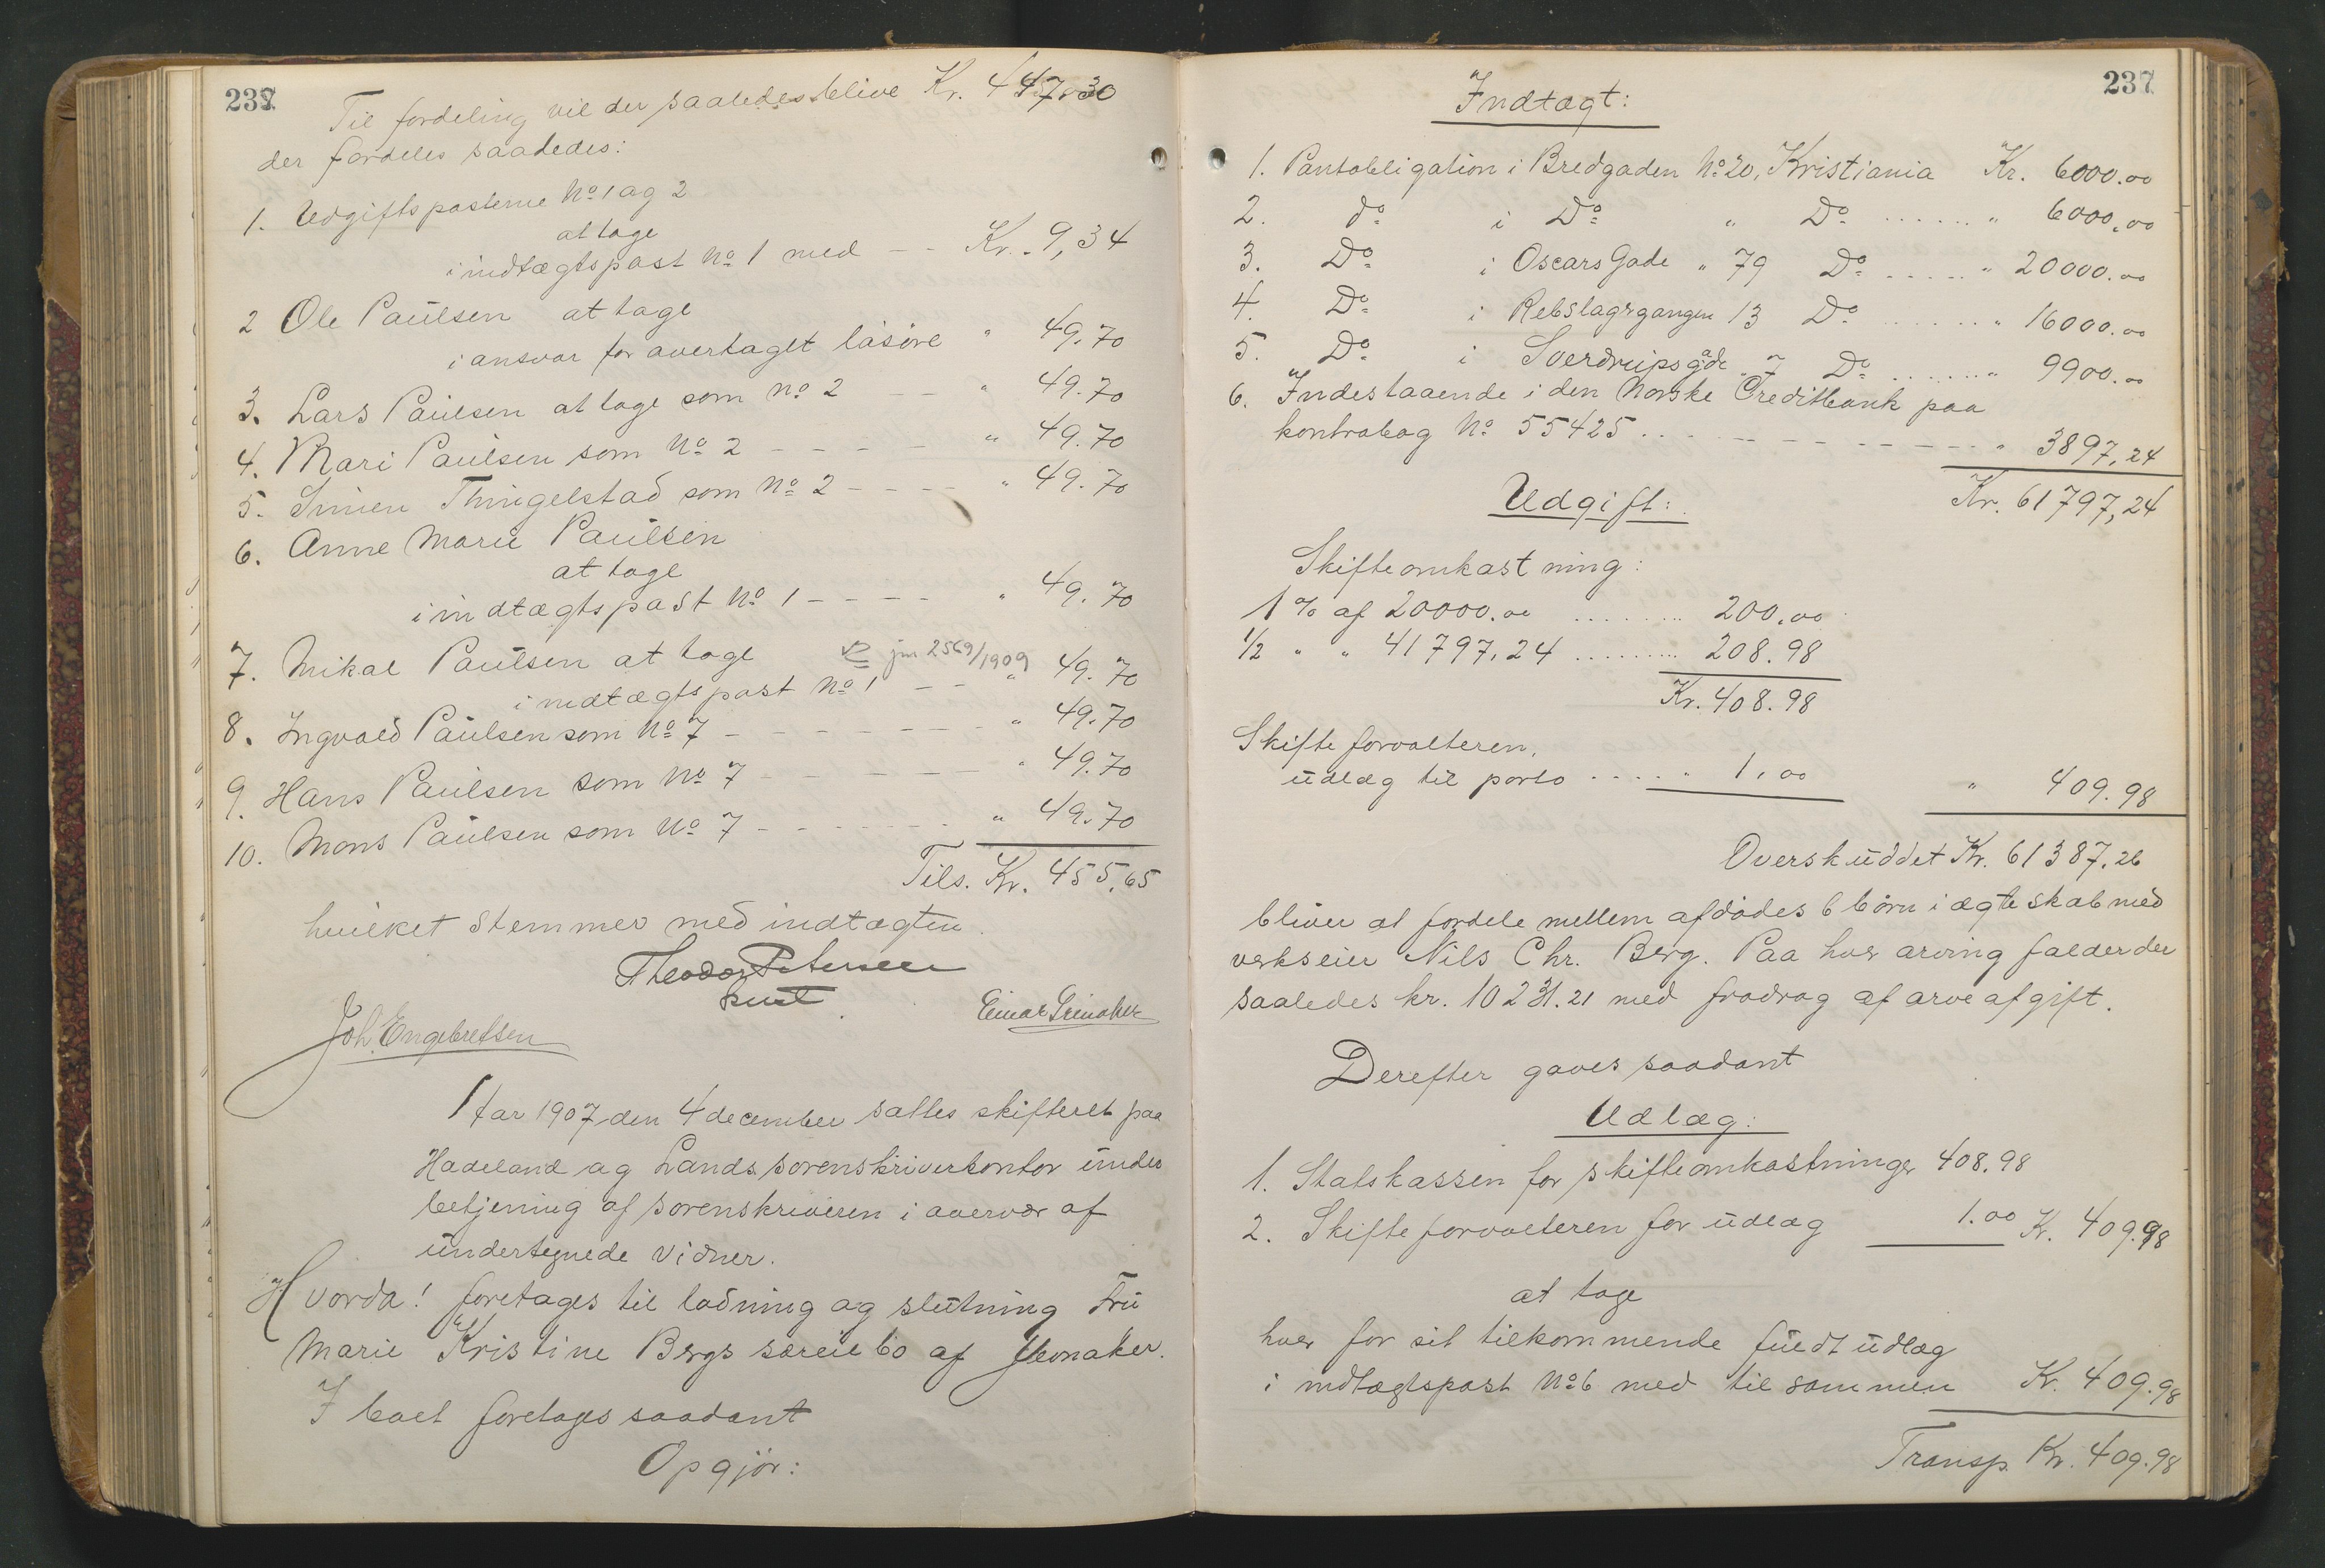 237
Til fordeling vil der saaledes blive Kr. 447,30
der fordeles saaledes:
1. Udgiftsposterne No 1 og 2
at tage
i indtægtspost No 1 med -- Kr. 9,34
2 Ole Paulsen at tage
i ansvar for overtaget løsøre " 49.70
3. Lars Paulsen at tage som No 2 -- " 49.70
4. Mari Paulsen som No 2 ---- " 49.70
5. Simen Thingelstad som No 2 ---- " 49.70
6. Anne Marie Paulsen
at tage
i indtægtspost No 1 ---- " 49.70
7. Mikal Paulsen at tage
jnr 2569/1909
i indtægtspost No 1 -- " 49.70
8. Ingvald Paulsen som No 7 ------ " 49.70
9. Hans Paulsen som No 7 ----- " 49.70
10. Mons Paulsen som No 7 ------ " 49.70
Tils. Kr. 455,65
hvilket stemmer med indtægten.
Theodor Petersen
Joh. Engebretsen
Einar Grinaker
Aar 1907 den 4 december sattes skifteret paa
Hadeland og Lands sorenskriverkontor under
betjening af sorenskriveren i overvær af
undertegnede vidner.
Hvorda! foretages til lodning og slutning Fru
Marie Kristine Bergs særeiebo af Jevnaker.
I boet foretages saadant
Opgjør:
237
Indtægt:
1. Pantobligation i Bredgaden No 20, Kristiania Kr. 6000.00
2. do i Do " Do ...... " 6000.00
3. Do i Oscars Gade " 79 Do ..... " 20000.00
4. Do i Rebslagergangen 13 Do ...... " 16000.00
5. Do i Sverdrupsgade " 7 Do ...... " 9900.00
6. Indestaaende i den Norske Creditbank paa
kontrabog No 55425 ... " 3897,24
Kr. 61797,24
Udgift:
Skifteomkostning:
1 % af 20000.00 ........ 200.00
1/2 " " 41797.24 ......... 208.98
Kr. 408.98
Skifteforvalteren,
udlæg til porto ..... " 1.00 " 409.98
Overskuddet Kr. 61387.26
bliver at fordele mellem afdødes 6 børn i ægteskab med
verkseier Nils Chr. Berg. Paa hver arving falder der
saaledes kr. 10231.21 med fradrag af arveafgift.
Derefter gaves saadant
Udlæg:
1. Statskassen for skifteomkostninger 408.98
2. Skifteforvalteren for udlæg 1.00 Kr. 409.98
at tage
hver for sit tilkommende fuldt udlæg
i indtægtspost No 6 med tilsammen Kr. 409.98
Transp. Kr. 409.98